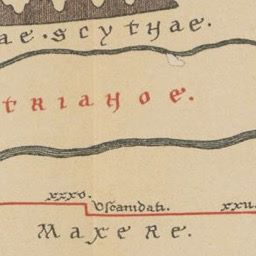 ae · scythae.
triahoe.
xxxv.
Uscanidati.
xxii.
Maxere.